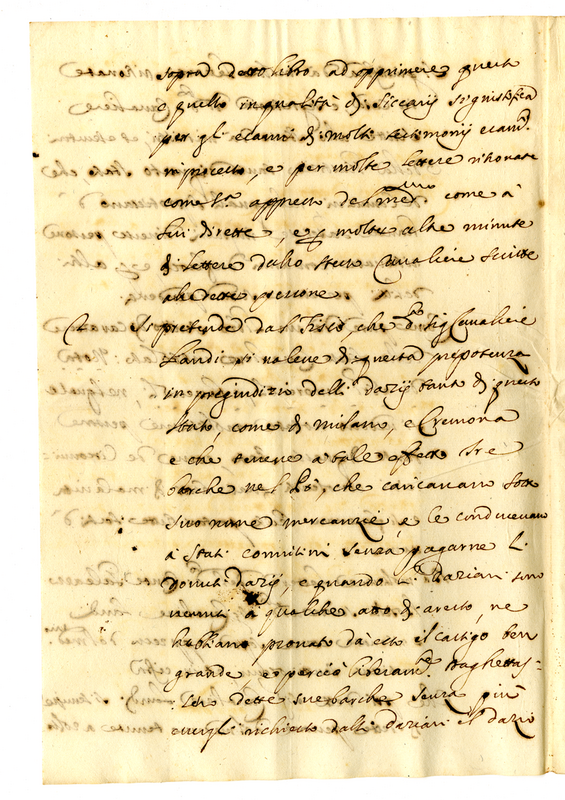 sopra detto libro ad opprimere questa
e quello in qualità di siccarij si giustifica
per gl'esami di molti testimonij esam.ti
in processo, e per molte lettere ritrovate
come s.a appresso del med.mo come à
lui dirette, e molte altre minute
di lettere dallo stesso Cavaliere scritte
alle dette persone
Si pretende dal Fisco che d.o Sig. Cavaliere
Landi si valeva di questa prepotenza
in pregiudizio delli dazij tanto di questo
stato, come di milano, e Cremona
e che tenesse a tale effetto tre
barche nel Pò, che caricavano sotto
suo nome mercanzie, e le conducevano
à stati convicini senza pagarne li
dovuti dazij, e quando li Daziari sono
venuti à qualche atto di aresto, ne
habbiano provato da esso il castigo ben
grande e perciò liberam.e traghettas-
sero dette sue barche senza più
essergli richiesto dalli daziari il dazio